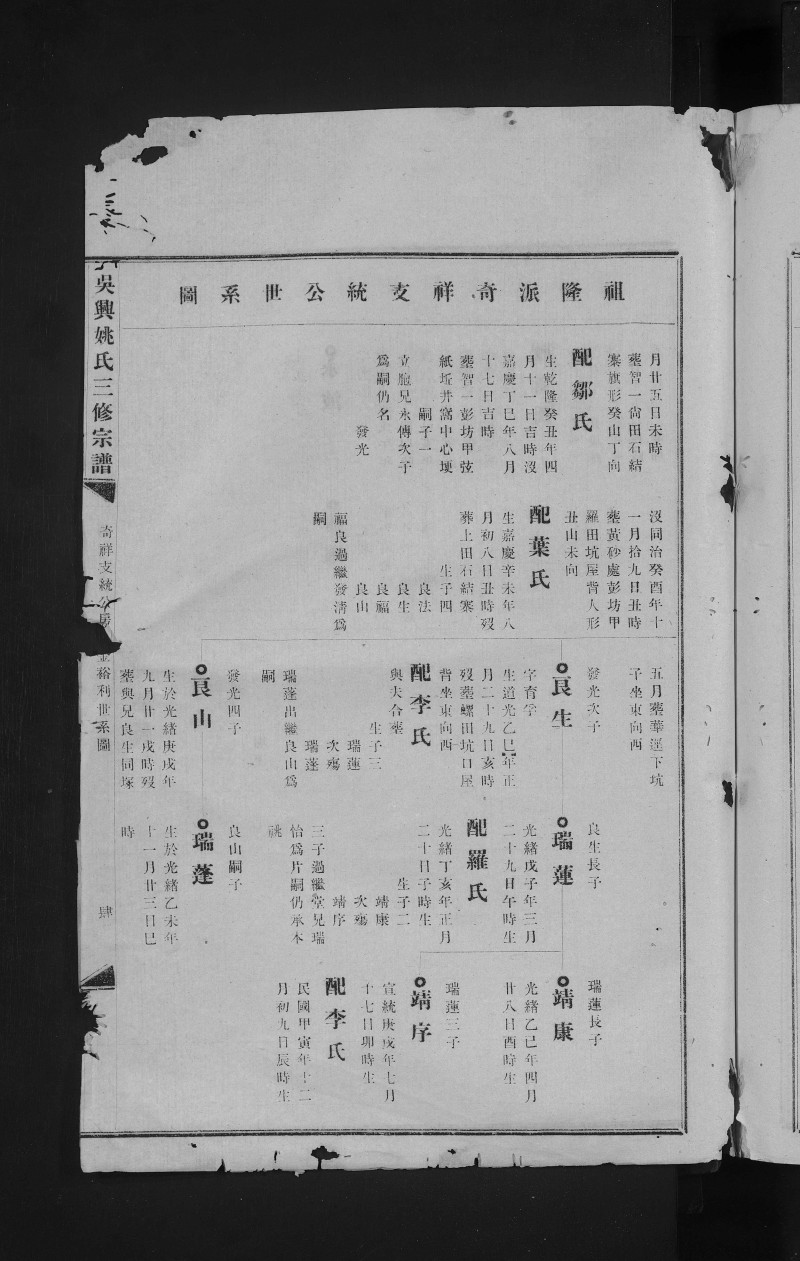 祖隆派奇祥支統公世系圖
月廿五日未時
葬智一尙田石結
寨旗形癸山丁向
配鄒氏
生乾隆癸丑年四
月十一日吉時沒
嘉慶丁巳年八月
十七日吉時
葬智一彭坊甲弦
紙坵井窩中心壈
嗣子一
立胞兄永傳次子
爲嗣仍名
發光
沒同治癸酉年十
一月拾九日丑時
葬黃砂處彭坊甲
羅田坑屋背人形
丑山未向
配葉氏
生嘉慶辛未年八
月初八日丑時歿
葬上田石結寨
生子四
良法
良生
良福
良山
福良過繼發淸爲
嗣
五月葬華逕下坑
子坐東向西
發光次子
良生
字育孚
生道光乙巳年正
月二十九日亥時
歿葬螺田坑口屋
背坐東向西
配李氏
與夫合葬
生子三
瑞蓮
次殤
瑞蓬
瑞蓬出繼良山爲
嗣
發光四子
良山
生於光緒庚戌年
九月廿一戌時歿
葬與兄良生同塚
良生長子
瑞蓮
光緒戊子年三月
二十九日午時生
配羅氏
光緒丁亥年正月
二十日子時生
生子二
靖康
次殤
靖序
三子過繼堂兄瑞
怡爲片嗣仍承本
祧
良山嗣子
瑞蓬
生於光緒乙未年
十一月廿三日巳
時
瑞蓮長子
靖康
光緒乙巳年四月
廿八日酉時生
瑞蓮三子
靖序
宣統庚戌年七月
十七日卯時生
配李氏
民國甲寅年十二
月初九日辰時生
吳興姚氏三修宗譜
奇祥支統公房
裕利世系圖
肆